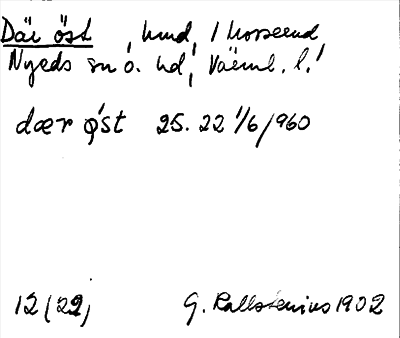 Där öst, hmd, 1 horseend
Nyeds sn o. hd, Värml. l.
dær øst 25. 22 1/6/960
12 (22) G. Kallstenius 1902